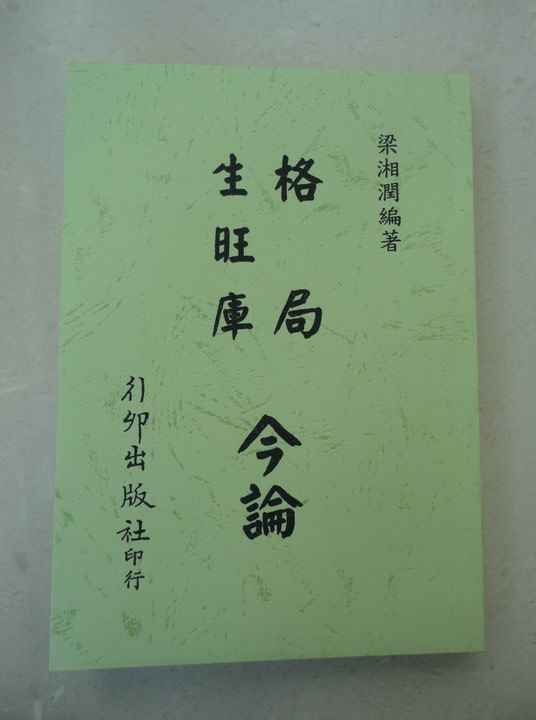 梁湘潤編著
格局
生旺庫
今論
行卯出版社印行